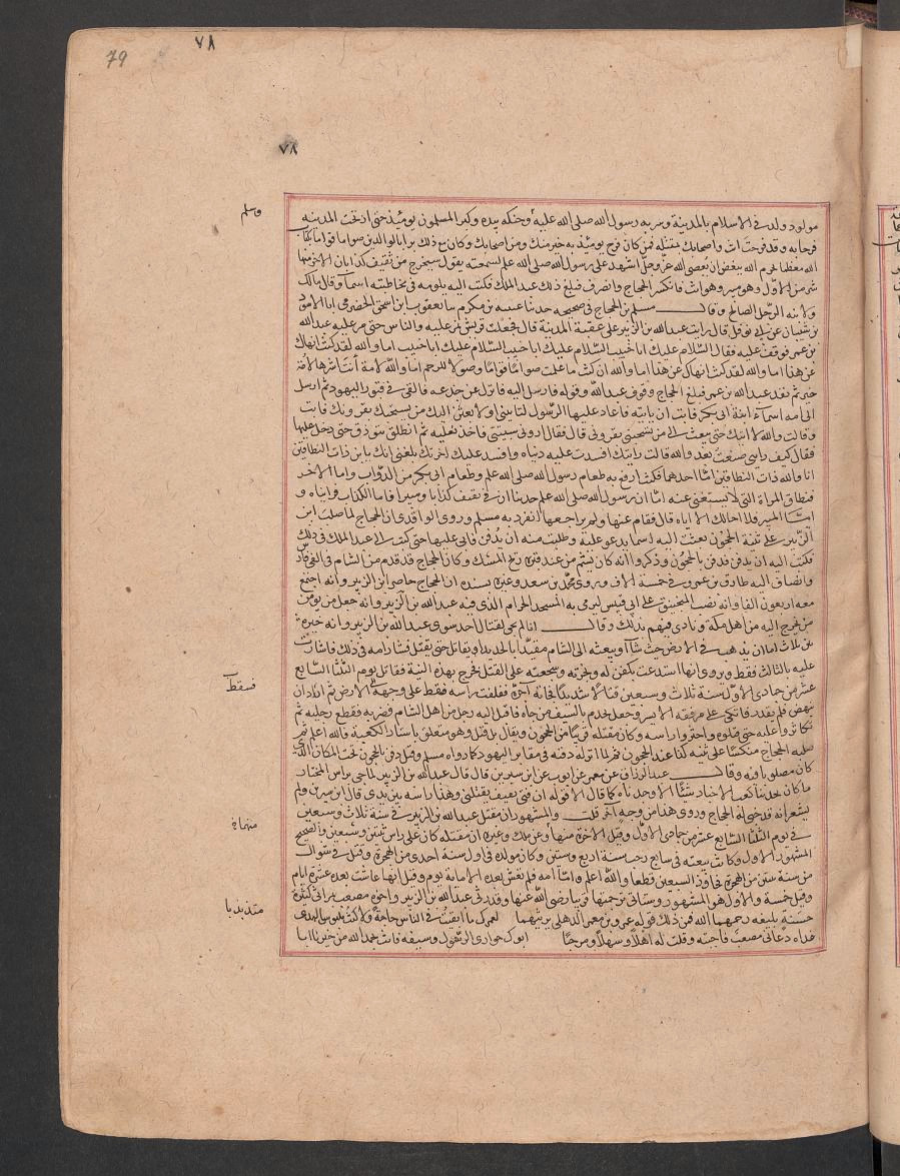 79
٧٨
٧٨
وسلم
مولود ولد في الاسلام بالمدينة وسر به رسول الله صلى الله عليه وحنكه بيده وكبر المسلمون يومئذ حتى ارتجت المدينة
فرحا به وقد فرحت انت واصحابك بمقتله فمن كان فرح يومئذ به خير منك ومن اصحابك وكان مع ذلك برا بالوالدين صواما قواما بكتاب
الله معظما لحرم الله يبغض ان يعصى الله عز وجل اشهد على رسول الله صلى الله عليه لسمعته يقول سيخرج من ثقيف كذابان الاخر منهما
شر من الاول وهو مبير وهو انت فانكسر الحجاج وانصرف فبلغ ذلك عبد الملك فكتب اليه يلومه في مخاطبته اسما وقال مالك
ولابنه الرجل الصالح وقال مسلم بن الحجاج في صحيحه حدثنا عقبه بن مكرم سا يعقوب ابن اسحق الحضرمي انا الاسود
بن شيبان عن ابي نوفل قال رايت عبد الله بن الزبير على عقبة المدينة قال فجعلت قريش تمر عليه والناس حتى مر عليه عبد الله
بن عمر فوقف عليه فقال السلام عليك ابا خبيب السلام عليك ابا خبيب السلام عليك ابا خبيب اما والله لقد كنت انهاك
عن هذا اما والله لقد كنت انهاك عن هذا اما والله ان كنت ما علمت صواما قواما وصولا للرحم اما والله لامة انت شرها لامة
خير ثم نفذ عبد الله بن عمر فبلغ الحجاج وقوف عبد الله وقوله فارسل اليه فانزل عن جذعه فالقي في قبور اليهود ثم ارسل
الى امه اسماء ابنة ابي بكر فابت ان ياتيه فاعاد عليها الرسول لتاتيني او لابعثن اليك من يسحبك بقرونك فابت
وقالت والله لا اتيك حتى تبعث الي من يسحبني بقروني قال فقال اروني سبتتي فاخذ نعليه ثم انطلق يتوذف حتى دخل عليها
فقال كيف رايتي صنعت بعدو الله قالت رايتك افسدت عليه دنياه وافسد عليك اخرتك بلغني انك يا ابن ذات النطاقين
انا والله ذات النطاقين اما احدهما فكنت ارفع به طعام رسول الله صلى الله عليه وطعام ابي بكر من الدواب واما الاخر
فنطاق المراة التي لا تستغني عنه اما ان رسول الله صلى الله عليه حدثنا ان في ثقيف كذابا ومبيرا فاما الكذاب فرايناه و
اما المبير فلا اخالك الا اياه قال فقام عنها ولم يراجعها انفرد به مسلم وروى الواقدي ان الحجاج لما صلب ابن
الزبير على ثنية الحجون بعثت اليه اسما يدعو عليه وطلبت منه ان يدفن فابى عليها حتى كتب الى عبد الملك في ذلك
فكتب اليه ان يدفن فدفن بالحجون وذكروا انه كان يشم من عند قبره ريح المسك وكان الحجاج قد قدم من الشام في الفي فارس
وانضاف اليه طارق بن عمرو في خمسة الاف وروى محمد بن سعد وغيره بسنده ان الحجاج حاصر ابن الزبير وانه اجتمع
معه اربعون الفا وانه نصب المنجنيق على ابي قبيس ليرمي به المسجد الحرام الذي فيه عبد الله بن الزبير وانه جعل من يومن
من يخرج اليه من اهل مكة ونادى فيهم بذلك وقال انا لم نجي لقتال احد سوى عبد الله بن الزبير وانه خيره
بن ثلاث اما ان يذهب في الارض حيث شاء او يبعثه الى الشام مقيدا بالحديد او يقاتل حتى يقتل فشاور امه في ذلك فاشارت
عليه بالثالث فقط ويروى انها استدعت بكفن له وبخرته وشجعته على القتل فخرج بهذه النية فقاتل يوم الثلثا السابع
فسقط
عشر من جمادى الاول سنة ثلاث وسبعين قتالا شديدا فجاته آجرة ففلقت راسه فقط على وجهه الى الارض ثم اراد ان
ينهض فلم يقدر فاتكى على مرفقه الايسر وجعل يخدم بالسيف من جاه فاقبل اليه رجل من اهل الشام فضربه فقطع رجليه ثم
تكاثروا عليه حتى قتلوه واحتزوا راسه وكان مقتله قريبا من الحجون ويقال بل قتل وهو متعلق باستار الكعبة فالله اعلم ثم
صلبه الحجاج منكسا على ثنية كدا عند الحجون ثم لما انزله دفنه في مقابر اليهود كما رواه مسلم وقيل دفن بالحجون تحت المكان الذي
كان مصلوبا فيه وقال عبد الرزاق عن معمر عن ايوب عن ابن سيرين قال قال عبد الله بن الزبير لما جي براس المختار
ما كان يحدثنا كعب الاحبار شيئا الا وجدناه كما قال الا قوله ان فتى ثقيف يقتلني وهذا راسه بين يدي قال ابن سيرين ولم
يشعر انه قد خبي له الحجاج وروي هذا من وجه آخر قلت والمشهور ان مقتل عبد الله بن الزبير في سنة ثلاث وسبعين
منهاه
في يوم الثلثا السابع عشر من جمادى الاول وقيل الاخرة منها وعن ملك وغيره ان مقتله كان على راس ثنتين وسبعين والصحيح
المشهور الاول وكانت بيعته في سابع رجب سنة اربع وستين وكان مولده في اول سنة احدى من الهجرة وقيل في شوال
من سنة ثنتين من الهجرة فجاوز السبعين قطعا والله اعلم واما امه فلم تعش بعده الا ماية يوم وقيل انها عاشت بعده عشرة ايام
وقيل خمسة والاول هو المشهور وستاتي ترجمتها قريبا رضي الله عنها وقد رثى عبد الله بن الزبير واخوه مصعب بمراثي كثيرة
حسنة بليغه رحمهما الله فمن ذلك قوله عمرو بن معمر الذهلي يرثيهما لعمرك ما ابقيت في الناس حاجة ولا كنت ملبوس الهدى
متذبذبا
غداه دعاني مصعب فاجبته وقلت له اهلا وسهلا ومرحبا ابوك حواري الرسول وسيفه فانت بحمد الله من خيرنا ابا